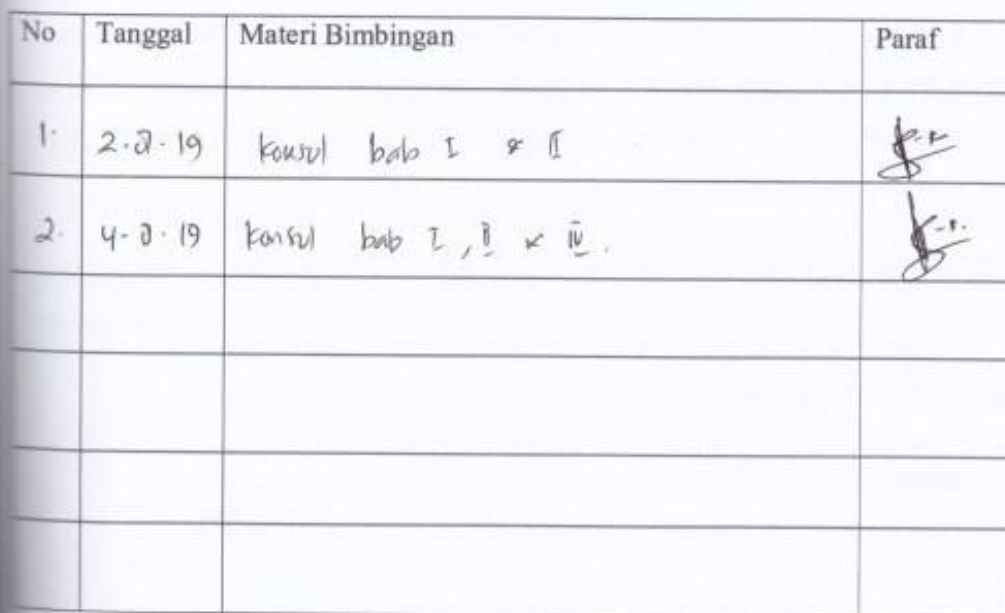 No Tanggal Materi Bimbingan Paraf
1. 2. .19 konsul bab I & II
2. 4- .19 konsul bab I, II & IV.